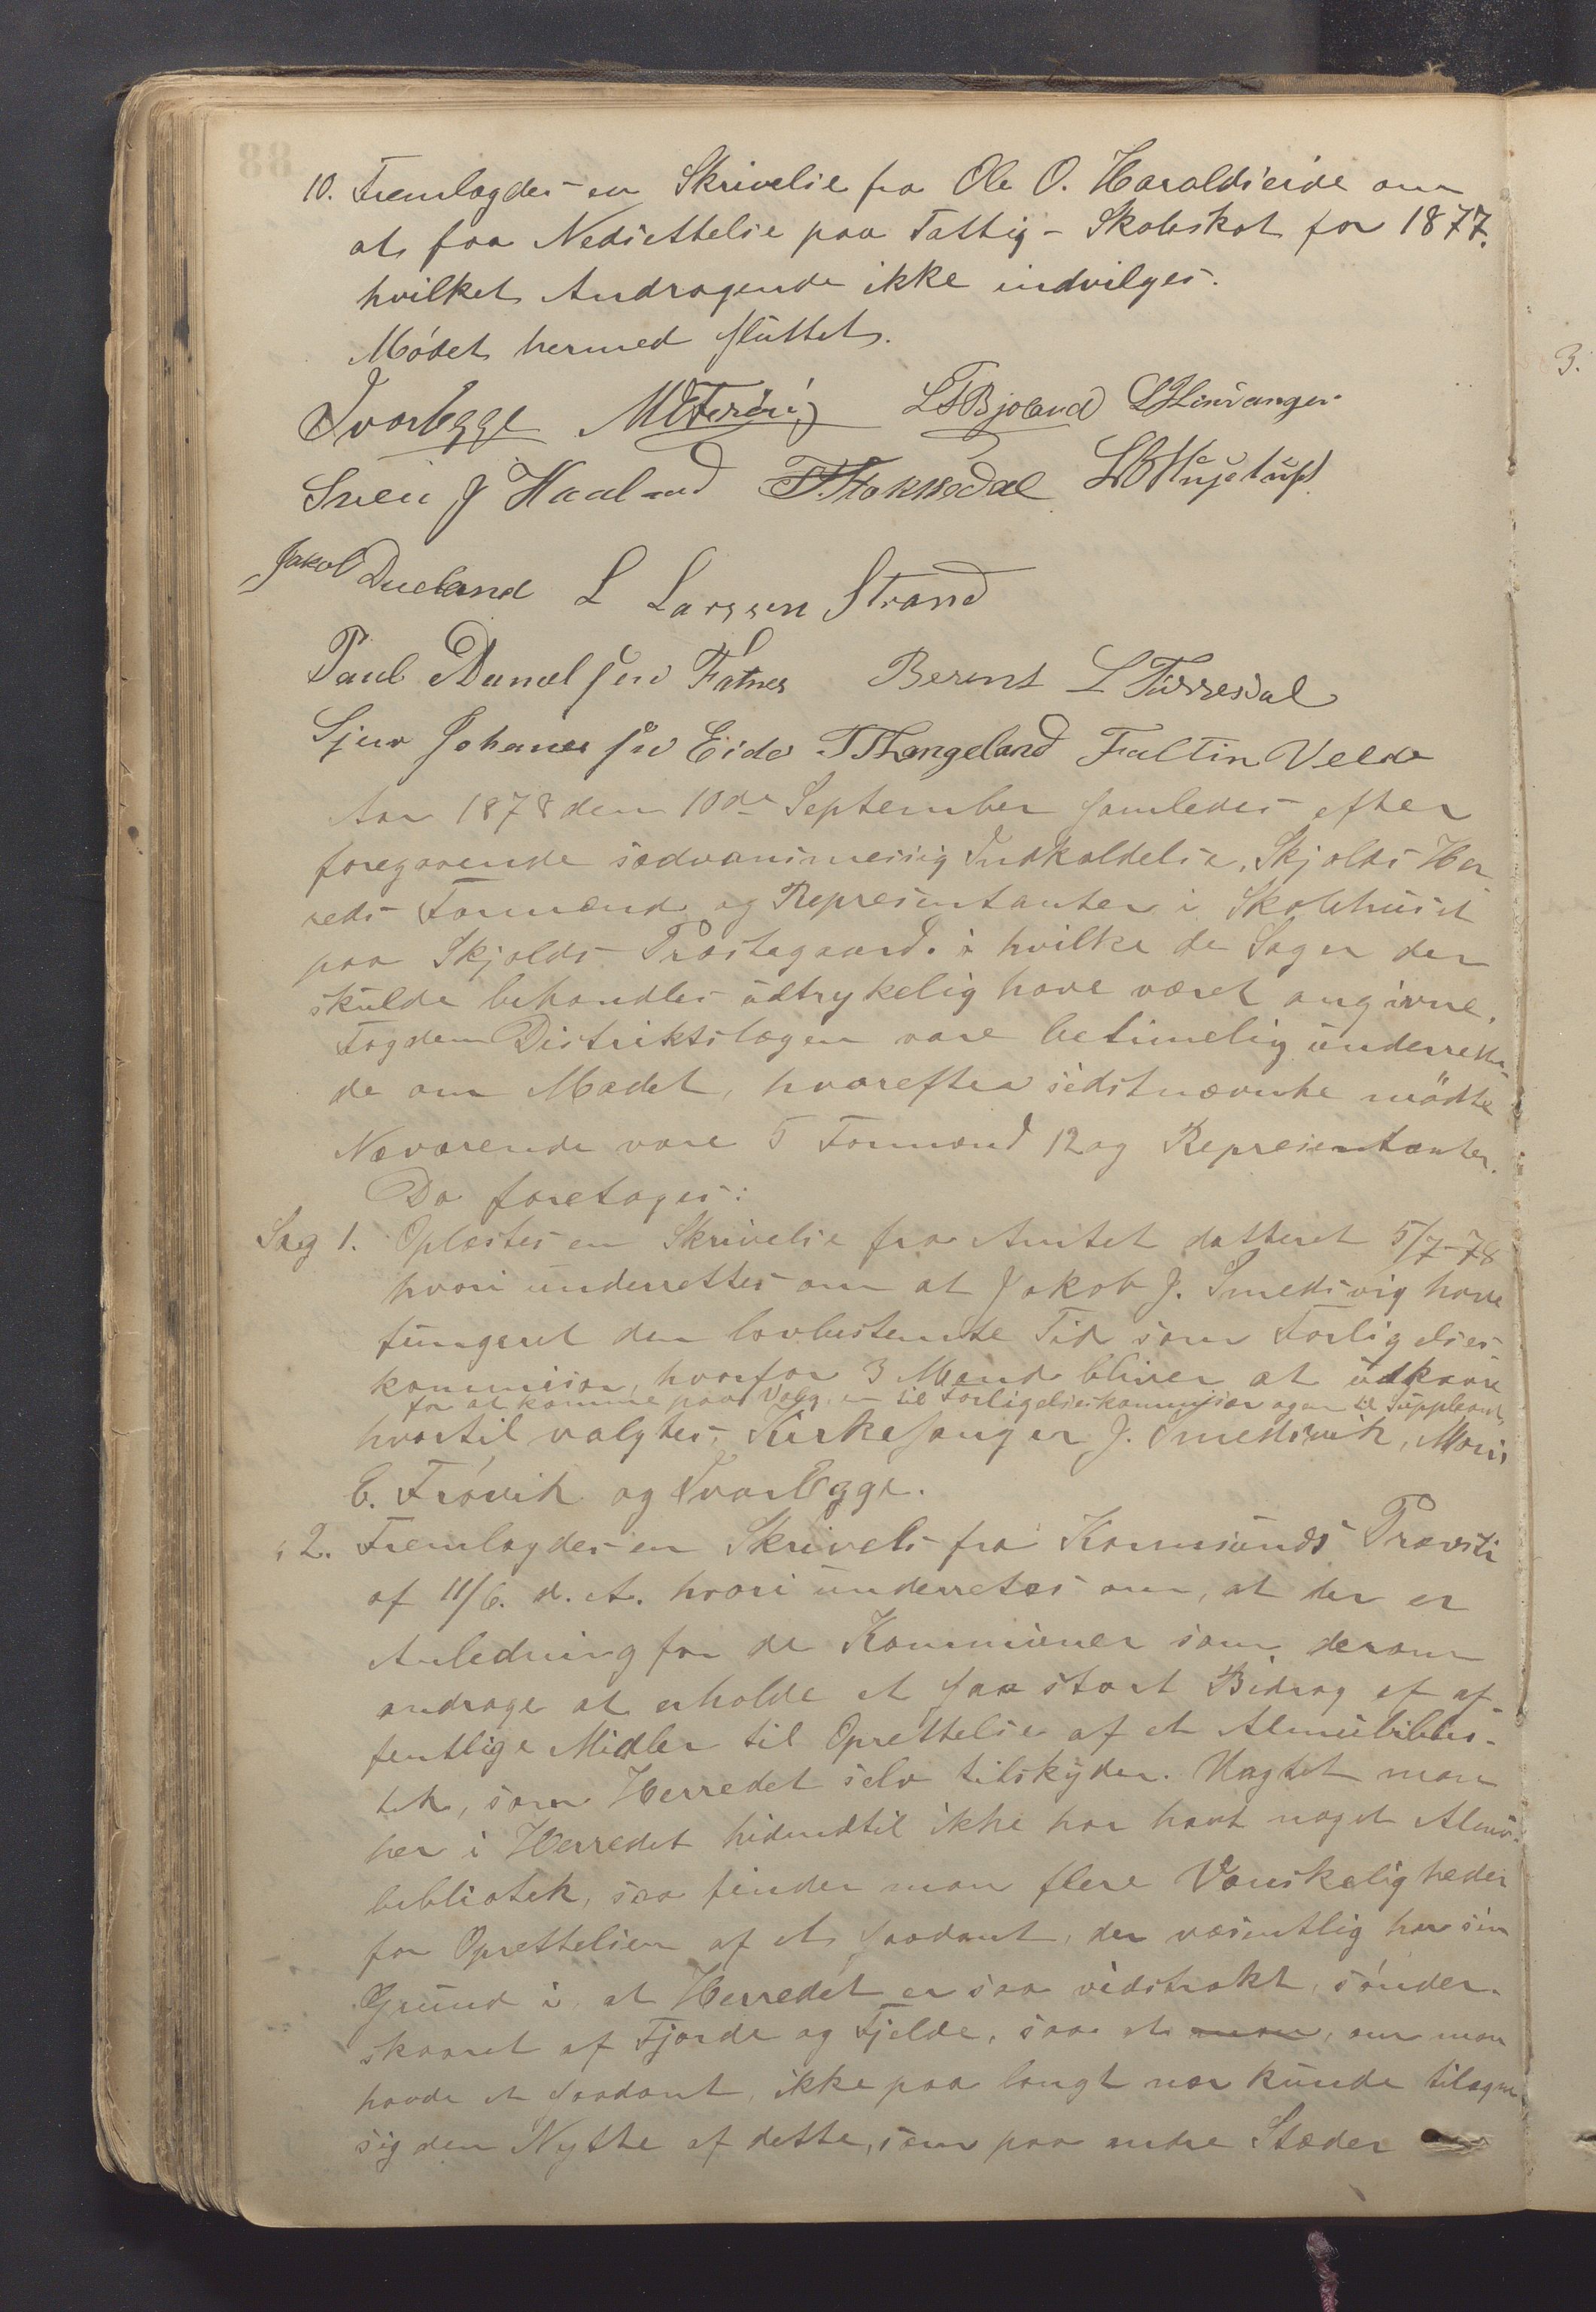 10. Fremlagdes en Skrivelse fra Ole O. Haraldseide om
at faa Nedsettelse paa Fattig- Skoleskat for 1877.
hvilket Andragende ikke indvilges.
Mødet hermed sluttet.
Ivar Egge L T Bjoland
Svein J Haaland T. Stokkedal
Jakob Dueland L Larssen Strand
Paul Danielsen Fatnes Berent L Turresdal
Sjur Johannessen Eide T T Langeland Faltin Velde
Aar 1878 den 10de September samledes efter
foregaaende sædvansmessig Indkaldelse, Skjolds Her
reds Formænd og Representanter i Skolehuset
paa Skjolds Præstegaard. i hvilke de Sager der
skulde behandles udtrykelig have været angivne.
Fogd em Distriktslægen vare betimelig underrette-
de om Mødet, hvorefter sidstnævnte mødte
Nærværende vare 5 Formænd 12 og Representanter.
Da foretages:
Sag 1. Oplæstes en Skrivelse fra Amtet datteret 5/7-78
hvori underrettes om at Jakob J. Smedsvig have
fungeret den lovbestemte Tid som Forligelses-
kommisær, hvorfor 3 Mænd bliver at udkaare
for at komme paa Valg en til Forligelseskommisær og en til Suppleant
hvortil valgtes, Kirkesanger J. Smedsvik, Mons
E. Frøvik og Ivar Egge.
" 2. Fremlagdes en Skrivels fra Karmsunds Provsti
af 11/6. d. A. hvori underretes om, at der er
Anledning for de Kommuner som derom
andrage at erholde et saa stort Bidrag af of-
fentlige Midler til Oprettelse af et Almubiblio-
tek, som Herredet selv tilskyder. Uagtet man
her i Herredet hidindtil ikke har havt noget Almu-
bibliotek, saa finder man flere Vanskeligheder
for Oprettelsen af et saadant, der væsentlig har sin
Grund i, at Herredet er saa vidstrakt, sønder-
skaaret af Fjorde og Fjelde, saa at man, om man
havde et saadant, ikke paa langt nær kunde tilegne
sig den Nytte af dette, som paa andre Stæder
3.
88